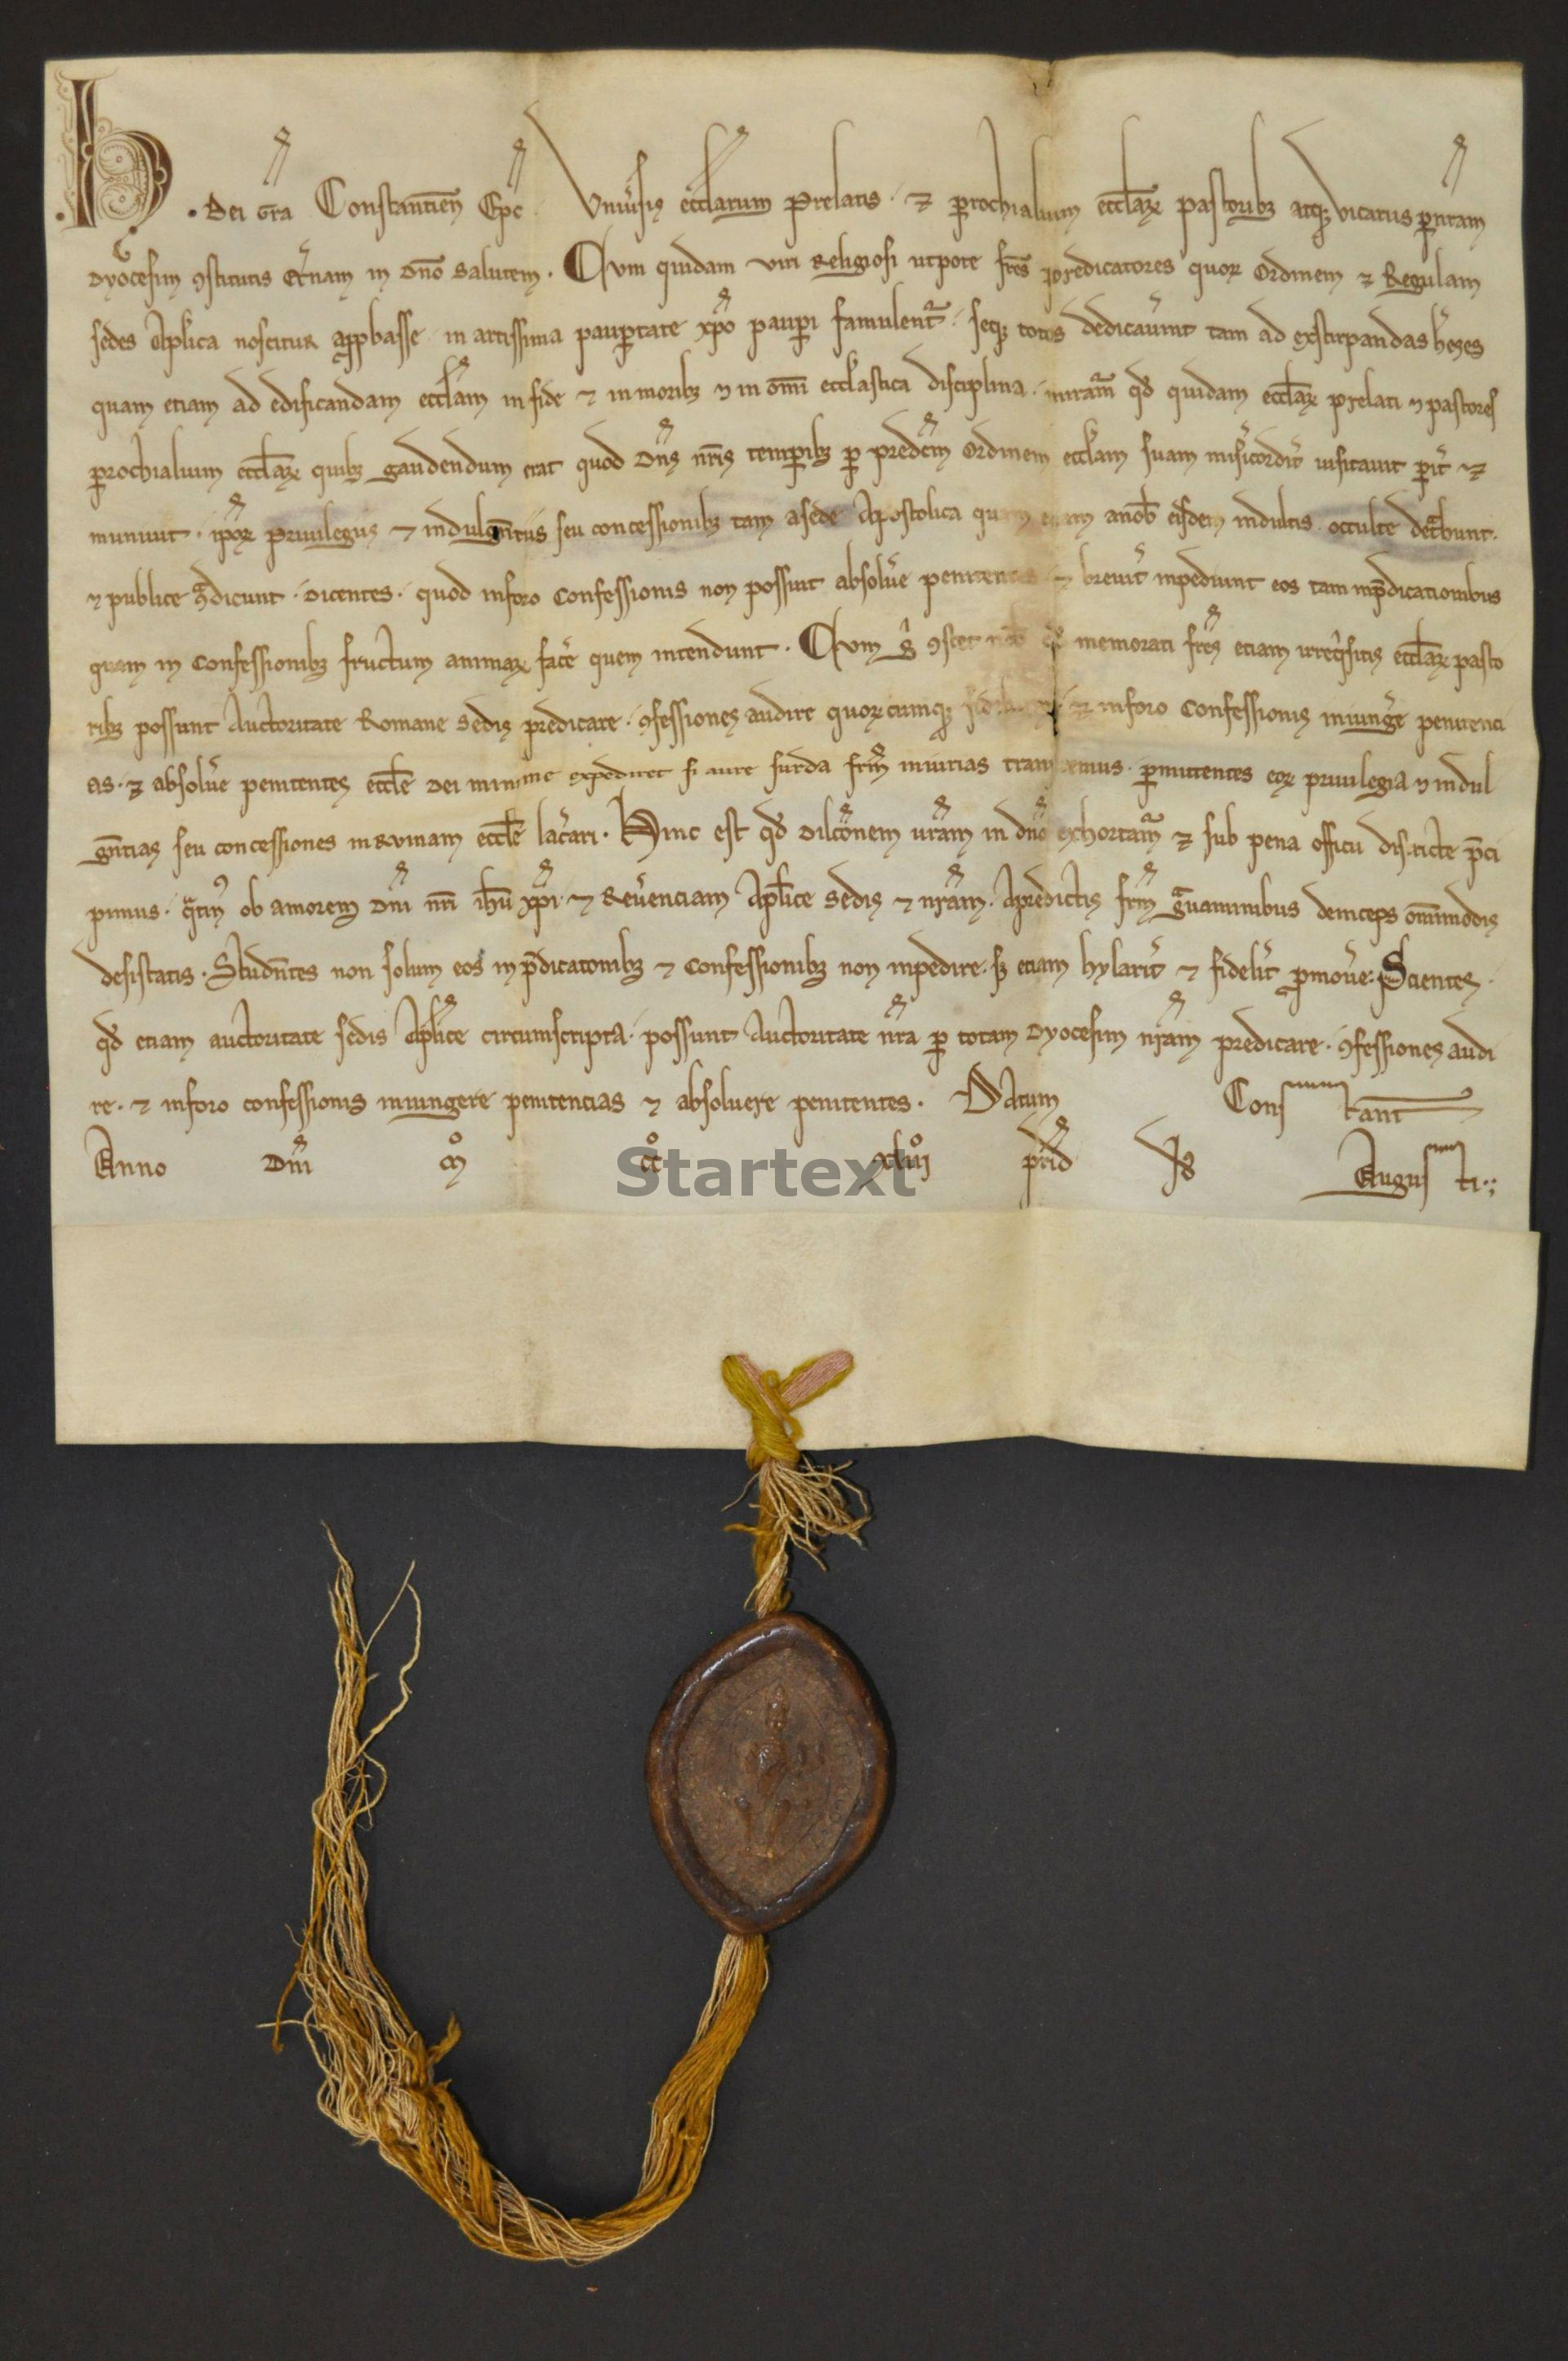 .H. Dei gr̅a Constantien̅ Ep̅c. Vniu̓sis eccl̅arum Prelatis . ⁊ ꝑrochialium eccl̅aꝝ pastoribꝫ atqꝫ vicariis ꝑ nr̅am
Dyocesim ꝯstitutis et̓nam in Dn̅o Salutem . Cvm quidam viri Religiosi utpote fr̅es predicatores quoꝝ Ordinem ⁊ Regulam
sedes Aplica noscitur apꝓbasse in artissima pauꝑtate xp̅o pauꝑi famulent᷑ . seqꝫ totos dedicau̓int tam ad exstirpandas h̓eses
quam etiam ad edificandam eccl̅am in fide ⁊ in moribꝫ ⁊ in om̅i eccl̅astica disciplina . miram᷑ qd̅ quidam eccl̅aꝝ prelati ⁊ pastores
ꝑrochialium eccl̅aꝝ quibꝫ gaudendum erat quod Dn̅s nr̅is temꝑibꝫ ꝑ predc̅m Ordinem eccl̅am suam mis̓icordit̓ uisitauit ꝑit̓ ⁊
muniuit . ip̅oꝝ priuilegiis ⁊ indulgn̅tiis seu concessionibꝫ tam a sede Apostolica quam etiam a nob̅ eisdem indultis occulte det̓hunt .
⁊ publice ꝯ̓dicunt . dicentes . quod in foro Confessionis non possint absolu̓e penitentes ⁊ breuit̓ inpediunt eos tam in p̅dicationibus
quam in Confessionibꝫ fructum animaꝝ fac̓e quem intendunt . Cvm g̓ ꝯstet nob̅ qd̅ memorati fr̅es etiam irreq̓sitis eccl̅aꝝ pasto
ribꝫ possunt Auctoritate Romane Sedis predicare . ꝯfessiones audire quoꝝcumqꝫ ⁊ in foro Confessionis iniung̓e penitenci
as . ⁊ absolu̓e penitentes eccl̅e Dei minime expediret si aure surda fr̅m iniurias transimus . ꝑmittentes eoꝝ priuilegia ⁊ indul
gn̅tias seu concessiones in Rvinam eccl̅e lac̓ari . Hinc est qd̅ Dilc̅onem ur̅am in dn̅o exhortam᷑ ⁊ sub pena officii districte p̅ci
pimus . q̓tin⁹ ob amorem Dn̅i nr̅i ih̅u xp̅i ⁊ Reu̓enciam Apl̅ice Sedis ⁊ nr̅am . A predictis fr̅m g̓uaminibus deinceps om̅imodis
desistatis . Studn̅tes non solum eos in p̅dicatonibꝫ ⁊ Confessionibꝫ non inpedire . sꝫ etiam hylarit̓ ⁊ fidelit̓ ꝓmou̓e : Scientes .
qd̅ etiam auctoritate sedis Apl̅ice circumscripta . possunt Auctoritate nr̅a ꝑ totam Dyocesim nr̅am predicare . ꝯfessiones audi
re . ⁊ in foro confessionis iniungere penitencias ⁊ absoluere penitentes . Datum Constant̅
Anno Dn̅i M̊ CC̊ xliiii̊ prid̅ Id̅ Augusti .;
Startext